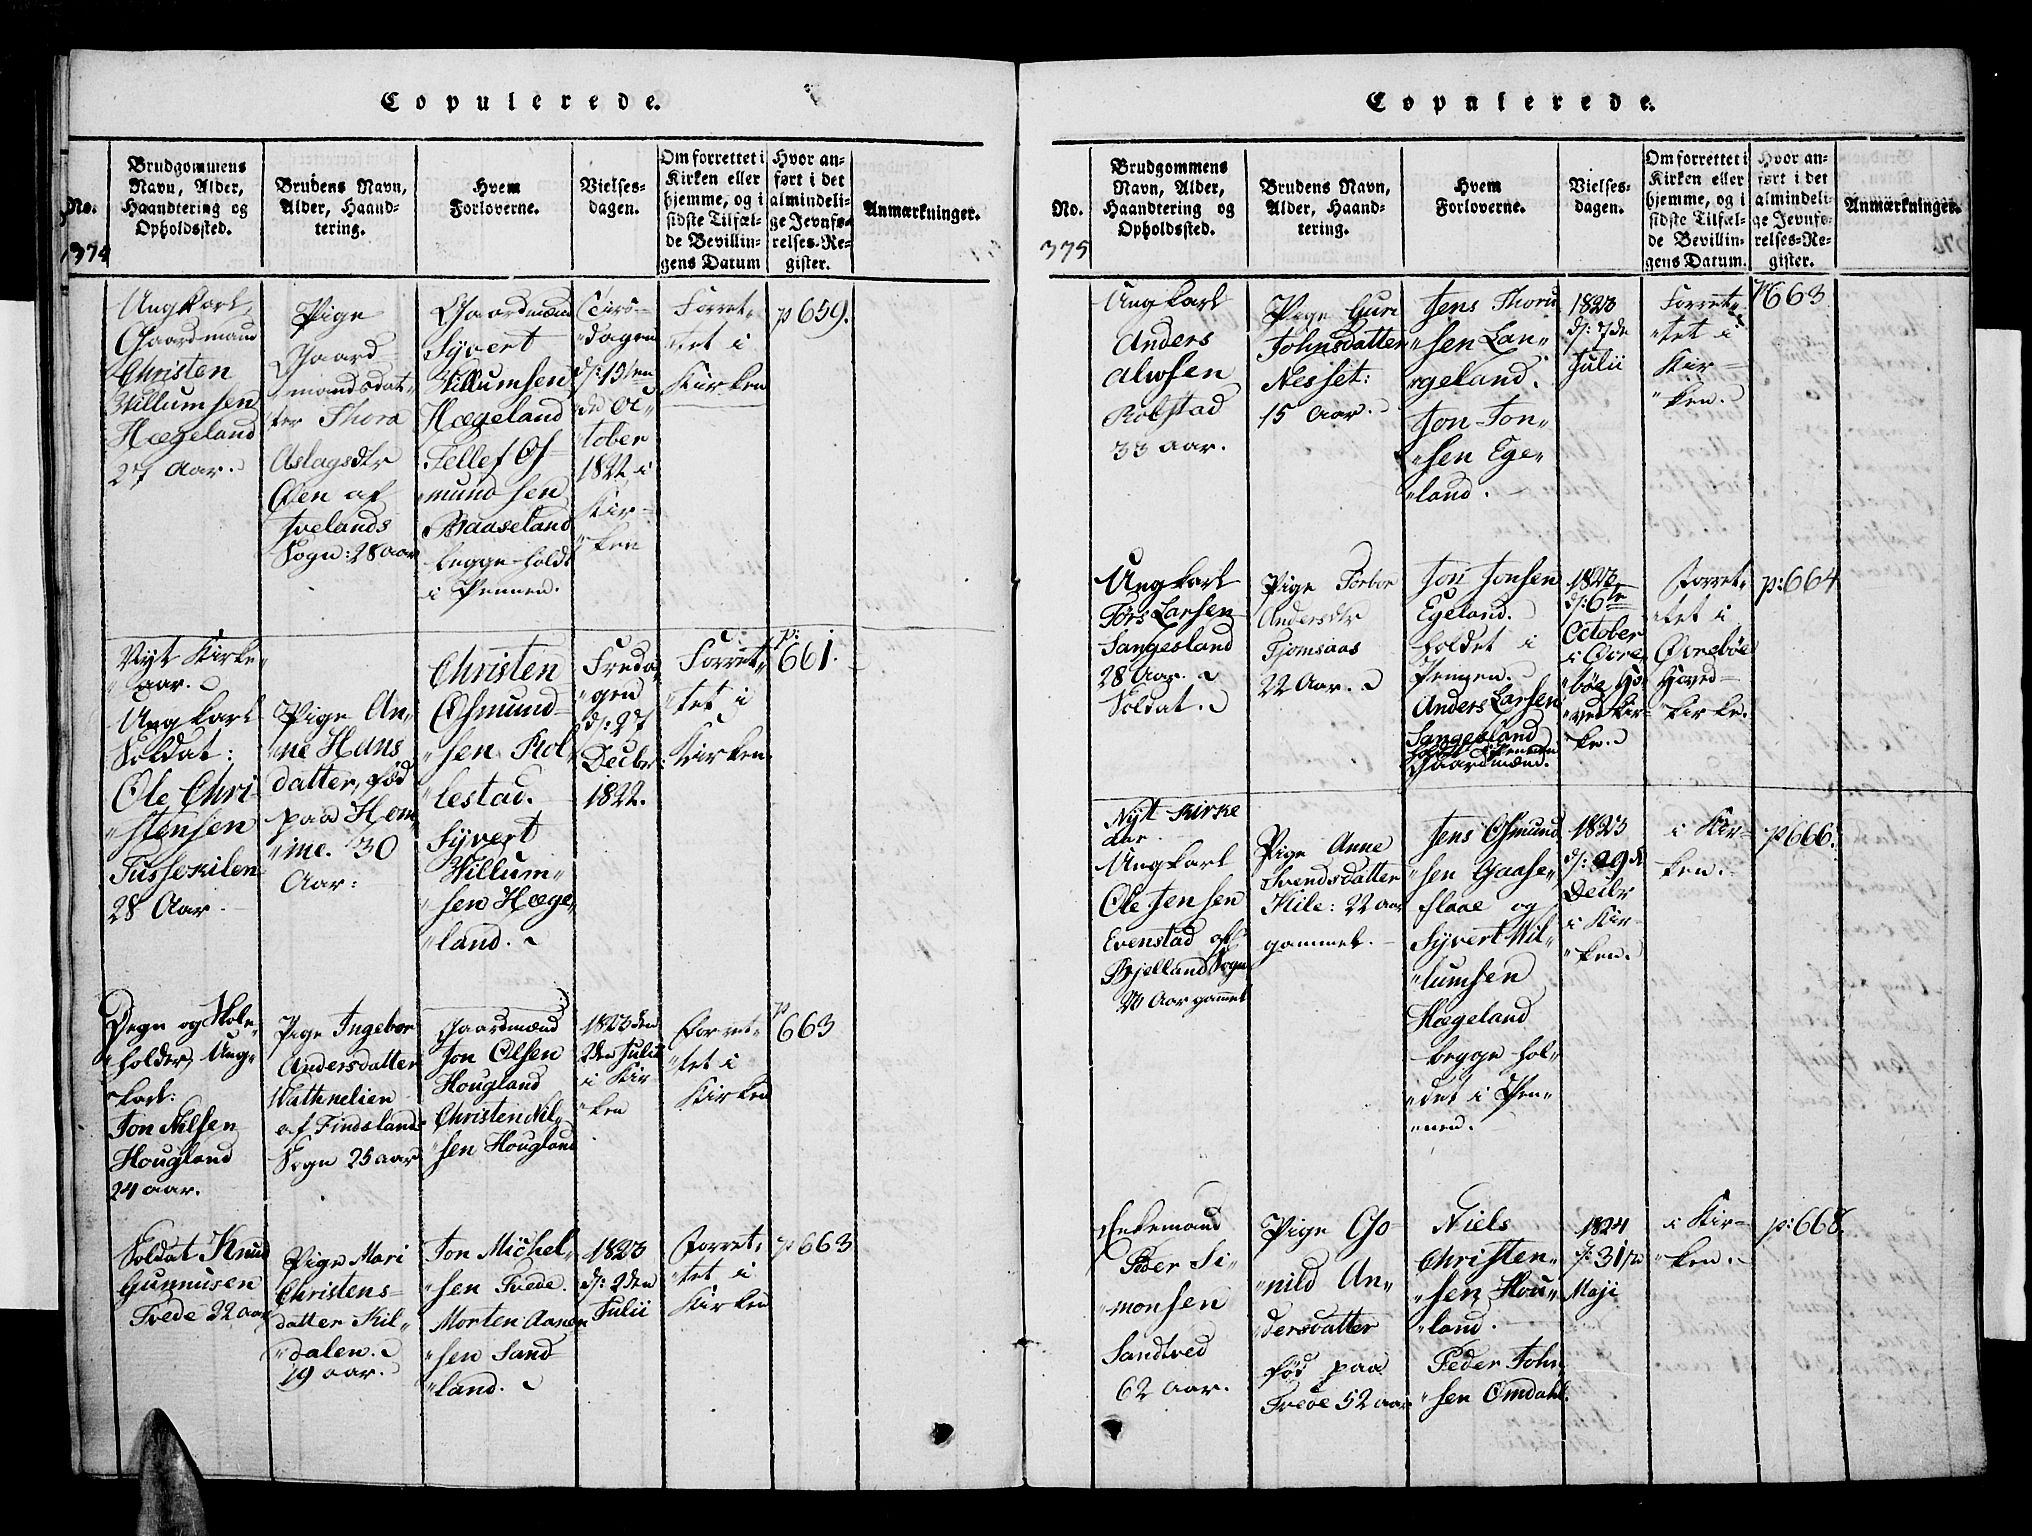 Copulerede.
No.
Brudgommens
Navn, Alder,
Haandtering og
Opholdssted.
Brudens Navn,
Alder, Haand-
tering.
Hvem
Forloverne.
Vielses-
dagen.
Om forrettet i
Kirken eller
hjemme, og i
sidste Tilfæl-
de Bevillin-
gens Datum
Hvor an-
ført i det
almindeli-
ge Jevnfø-
relses-Re-
gister.
Anmærkninger.
1374
Ungkarl
Gaardmand
Christen
Villumsen
Hægeland
27 Aar.
Pige
Gaard-
mandsdat-
ter Thora
Aslagsdtr
Øen af
Ivelands
Sogn: 28 aar
Gaardmænd
Syvert
Villumsen
Hægeland
Tellef Os-
mundsen
Baaseland
begge holdt
i Pennen.
Tirs-
dagen
d: 15ten
de Oc-
tober
1822 i
Kir-
ken
Forret-
tet i
Kirken
p 659.
Nyt Kirke-
aar.
Ungkarl
Soldat:
Ole Chri-
stensen
Fussekilen
28 Aar
Pige An-
ne Hans
datter, fød
paa Hom-
me. 30
Aar:
Christen
Osmund-
sen Rol-
lestad.
Syvert
Villum-
sen Hæge-
land.
Freda-
gen
d: 27
Decbr:
1822.
Forret-
tet i
Kirken
p:
661.
Degn og Skole-
holder, Ung-
karl:
Jon Nilsen
Hougland
24 aar.
Pige Ingebor
Andersdatter
Wathnelien
af Findsland
Sogn 25 aar
Gaardmænd
Jon Olsen
Hougland
Christen Nil-
sen Hougland
1823 den
2den Julii
i Kir-
ken
Forret-
tet i
Kirken
p
663
Soldat Knud
Gunnusen
Tvede 22 aar
Pige Mari
Christens-
datter Kil-
dalen.
19 aar.
Jon Michel-
sen Tvede.
Morten Aanen
sen Sand
land.
1823
d: 2den
Julii
Forret-
tet i
Kirken
p 663
Copulerede.
No.
Brudgommens
Navn, Alder,
Haandtering og
Opholdssted.
Brudens Navn,
Alder, Haand-
tering.
Hvem
Forloverne.
Vielses-
dagen.
Om forrettet i
Kirken eller
hjemme, og i
sidste Tilfæl-
de Bevillin-
gens Datum.
Hvor an-
ført i det
almindeli-
ge Jevnfø-
relses-Re-
gister.
Anmærkninger.
375
Ungkarl
Anders
Alvsen
Robstad
33 aar.
Pige Guri
Johnsdatter
Nesset:
15 Aar.
Jens Thoru
sen Lan-
geland.
Jon Jon-
sen Ege-
land.
1823
d: 7de
Julii
Forret-
tet i
Kir-
ken.
p 663
Ungkarl
Törs Larsen
Sangesland
28 Aar.
Soldat.
Pige Torbor
Andersdtr
Tjomsaas
22 Aar.
Jon Jonsen
Egeland.
holdet i
Pennen.
Anders Larsen
Sangesland
holdt i Pennen
Gaardmænd.
1823
d: 6te
October
i Øvre-
bøe Ho-
vedkir-
ke.
Forret-
tet i
Øvrebøe
Hoved-
kirke.
p: 664
Nyt Kirke
aar.
Ungkarl
Ole Jensen
Evenstad af
Bjelland Sogn
Aar gammel
Pige Anne
Svendsdatter
Kile: 22 aar
gammel.
Jens Osmund
sen Gaase-
flaae og
Syvert Wil-
lumsen
Hægeland
begge hol-
det i Pen-
nen.
1823
d: 29 d
Decbr
i Kir-
ken.
i Kir-
ken.
p 666.
Enkemand
Peder Si-
monsen
Sandtved
62 aar.
Pige Go-
nild An-
dersdatter
fød paa
Tvede 52 aar
Niels
Christen-
sen Hou-
land.
Peder John
sen Omdahl.
1824
d: 31te
Maji
i Kir-
ken.
p: 668.